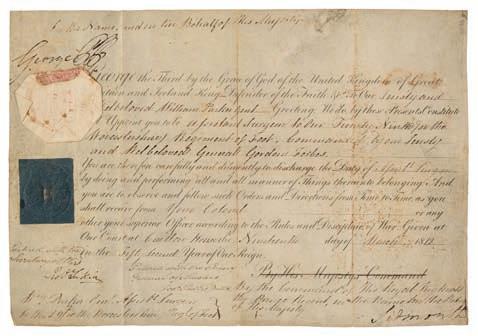 In the Name, and on the Behalf of His Majesty
George P R
George the Third by the Grace of God of the United Kingdom of Great
Britain and Ireland King, Defender of the Faith &c. To Our Trusty and
Welbeloved William Parker Gent Greeting. We do by these Presents Constitute
Appoint you to be Assistant Surgeon to Our Twenty Ninth or the
Worcestershire Regiment of Foot, Commanded by our Trusty
and Welbeloved General Gordon Forbes
You are therefore carefully and diligently to discharge the Duty of Assist. Surgeon
by doing and performing all and all manner of Things thereunto belonging: And
you are to observe and follow such Orders and Directions from Time to Time, as you
shall receive from Your Colonel or any
other your superior Officer according to the Rules and Discipline of War. Given at
Our Court at Carlton House the Nineteenth day of March 1812
In the Fifty Second Year of Our Reign.
Entered with the
Secretary at War
Entered with the
By His Majesty's Command
By the Command of His Royal Highness
the Prince Regent, in the Name and on the Behalf
of His Majesty
Assist. Surgeon
to the 29th or the Worcestershire Reg. of Foot